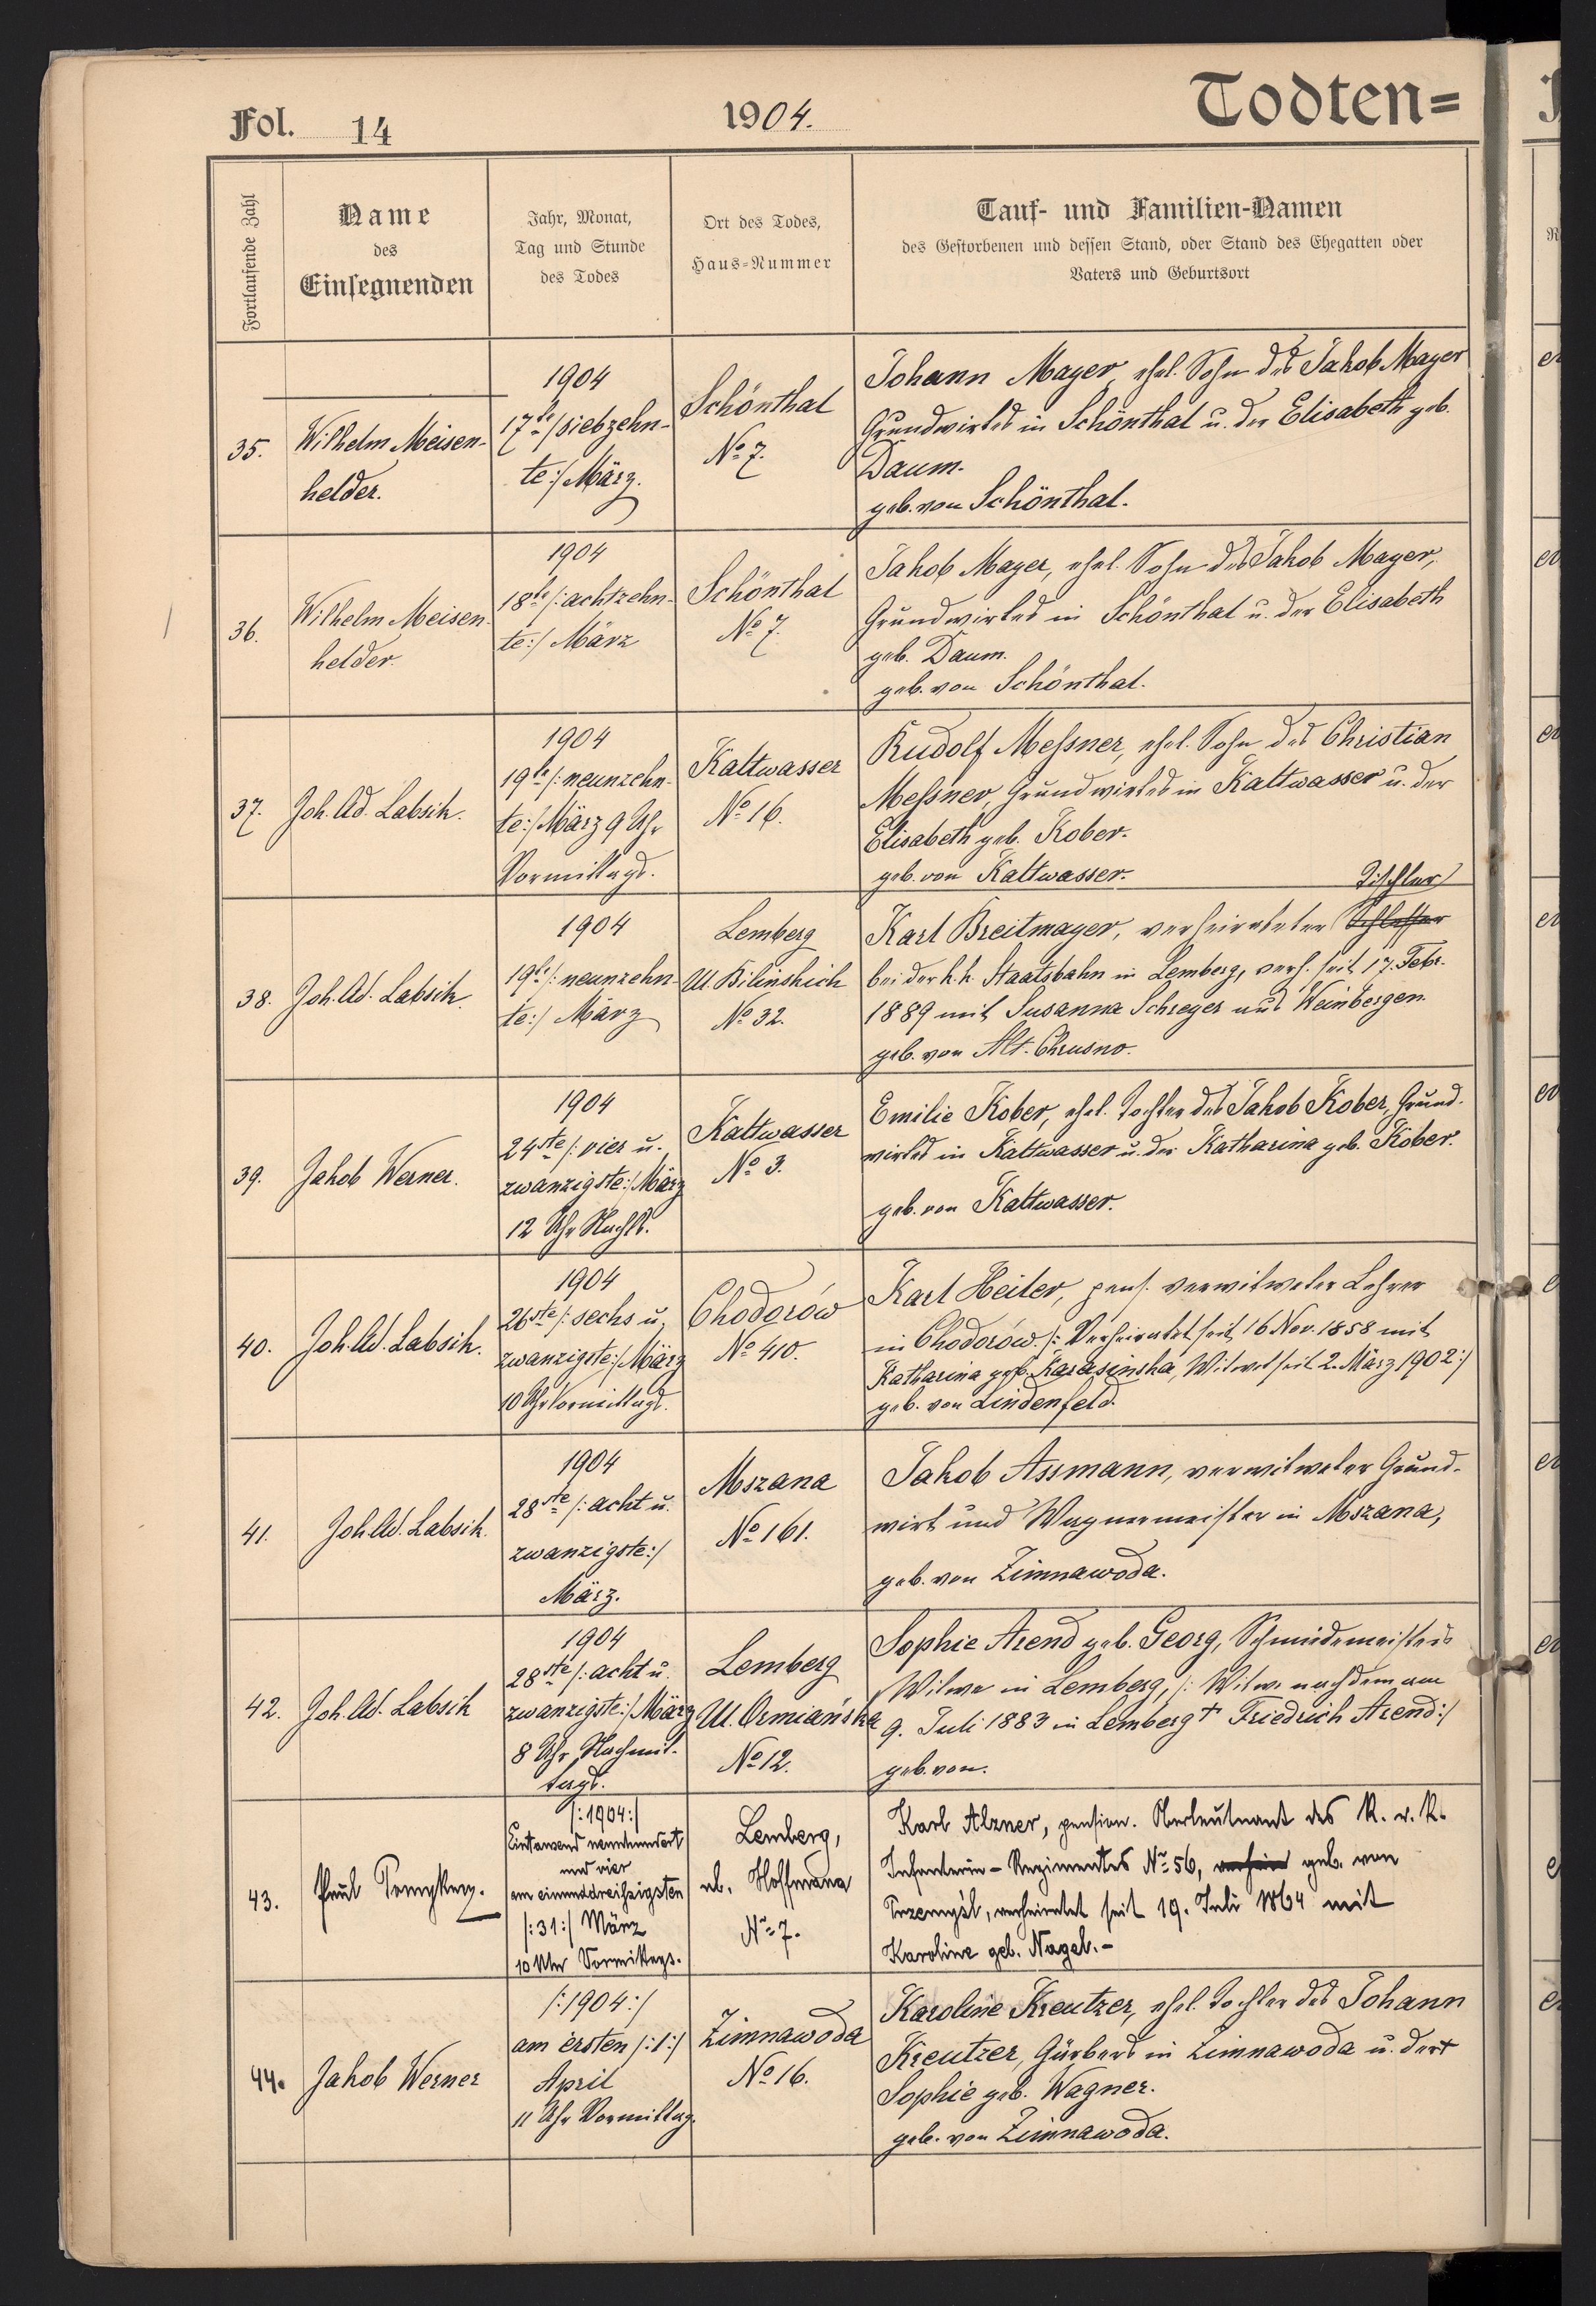 Fol. 14
1904.
Todten=
Fortlaufende Zahl
Name
des
Einsegnenden
Jahr, Monat,
Tag und Stunde
des Todes
Ort des Todes,
Haus=Nummer
Tauf- und Familien-Namen
des Gestorbenen und dessen Stand, oder Stand des Ehegatten oder
Vaters und Geburtsort
35.
Wilhelm Meisen-
helder.
1904
17te /:siebzehn-
te:/ März.
Schönthal
No 7.
Johann Mayer, ehel. Sohn des Jakob Mayer
Grundwirtes in Schönthal u. der Elisabeth geb.
Daum.
geb. von Schönthal.
36.
Wilhelm Meisen-
helder.
1904
18te /:achtzehn-
te:/ März
Schönthal
No 7.
Jakob Mayer, ehel. Sohn des Jakob Mayer,
Grundwirtes in Schönthal u. der Elisabeth
geb. Daum.
geb. von Schönthal.
37.
Joh. Ad. Labsik.
1904
19te /:neunzehn-
te:/ März 9 Uhr
Vormittags.
Kaltwasser
No 16.
Rudolf Messner, ehel. Sohn des Christian
Messner, Grundwirtes in Kaltwasser u. der
Elisabeth geb. Kober.
geb. von Kaltwasser.
38.
Joh. Ad. Labsik
1904
19te /:neunzehn-
te:/ März
Lemberg
Ul. Bilinskich
No 32.
Tischler
Karl Breitmayer, verheirateter Schlosser
bei der k.k. Staatsbahn in Lemberg, verh. seit 17. Febr.
1889 mit Susanna Schreyer aus Weinbergen.
geb. von Alt-Chrusno.
39.
Jakob Werner.
1904
24ste /:vier u.
zwanzigste:/ März
12 Uhr Nachts.
Kaltwasser
No 3.
Emilie Kober, ehel. Tochter des Jakob Kober, Grund-
wirtes in Kaltwasser u. der Katharina geb. Kober.
geb. von Kaltwasser.
40.
Joh. Ad. Labsik.
1904
26ste /:sechs u.
zwanzigste:/ März
10 Uhr Vormittags.
Chodorów
No 410.
Karl Heiter, pens. verwitweter Lehrer
in Chodorów /: Verheiratet seit 16 Nov. 1858 mit
Katharina geb. Karasinska, Witwet seit 2. März 1902:/
geb. von Lindenfeld.
41.
Joh. Ad. Labsik.
1904
28ste /:acht u.
zwanzigste:/
März.
Mszana
No 161.
Jakob Assmann, verwitweter Grund-
wirt und Wagnermeister in Mszana,
geb. von Zimnawoda.
42.
Joh. Ad. Labsik
1904
28ste /:acht u.
zwanzigste:/ März
8 Uhr Nachmit-
tags.
Lemberg
Ul. Ormiańska
No 12.
Sophie Arend geb. Georg, Schmiedemeisters
Witwe in Lemberg, /: Witwe nach dem am
9. Juli 1883 in Lemberg † Friedrich Arend:/
geb. von.
43.
Paul
/:1904:/
Eintausend neunhundert
und vier
am einunddreißigsten
/:31:/ März
10 Uhr Vormittags.
Lemberg,
ul. Hoffmana
No 7.
Karl Alzner, pension. Oberleutnant des K. u. K.
Infanterie-Regimentes No 56, geb. von
Przemyśl, verheiratet seit 19. Juli 1864 mit
Karoline geb. Nagel.-
44.
Jakob Werner
/:1904:/
am ersten /:1:/
April
11 Uhr Vormittag.
Zimnawoda
No 16.
Karoline Kreutzer, ehel. Tochter des Johann
Kreutzer, in Zimnawoda u. der
Sophie geb. Wagner.
geb. von Zimnawoda.